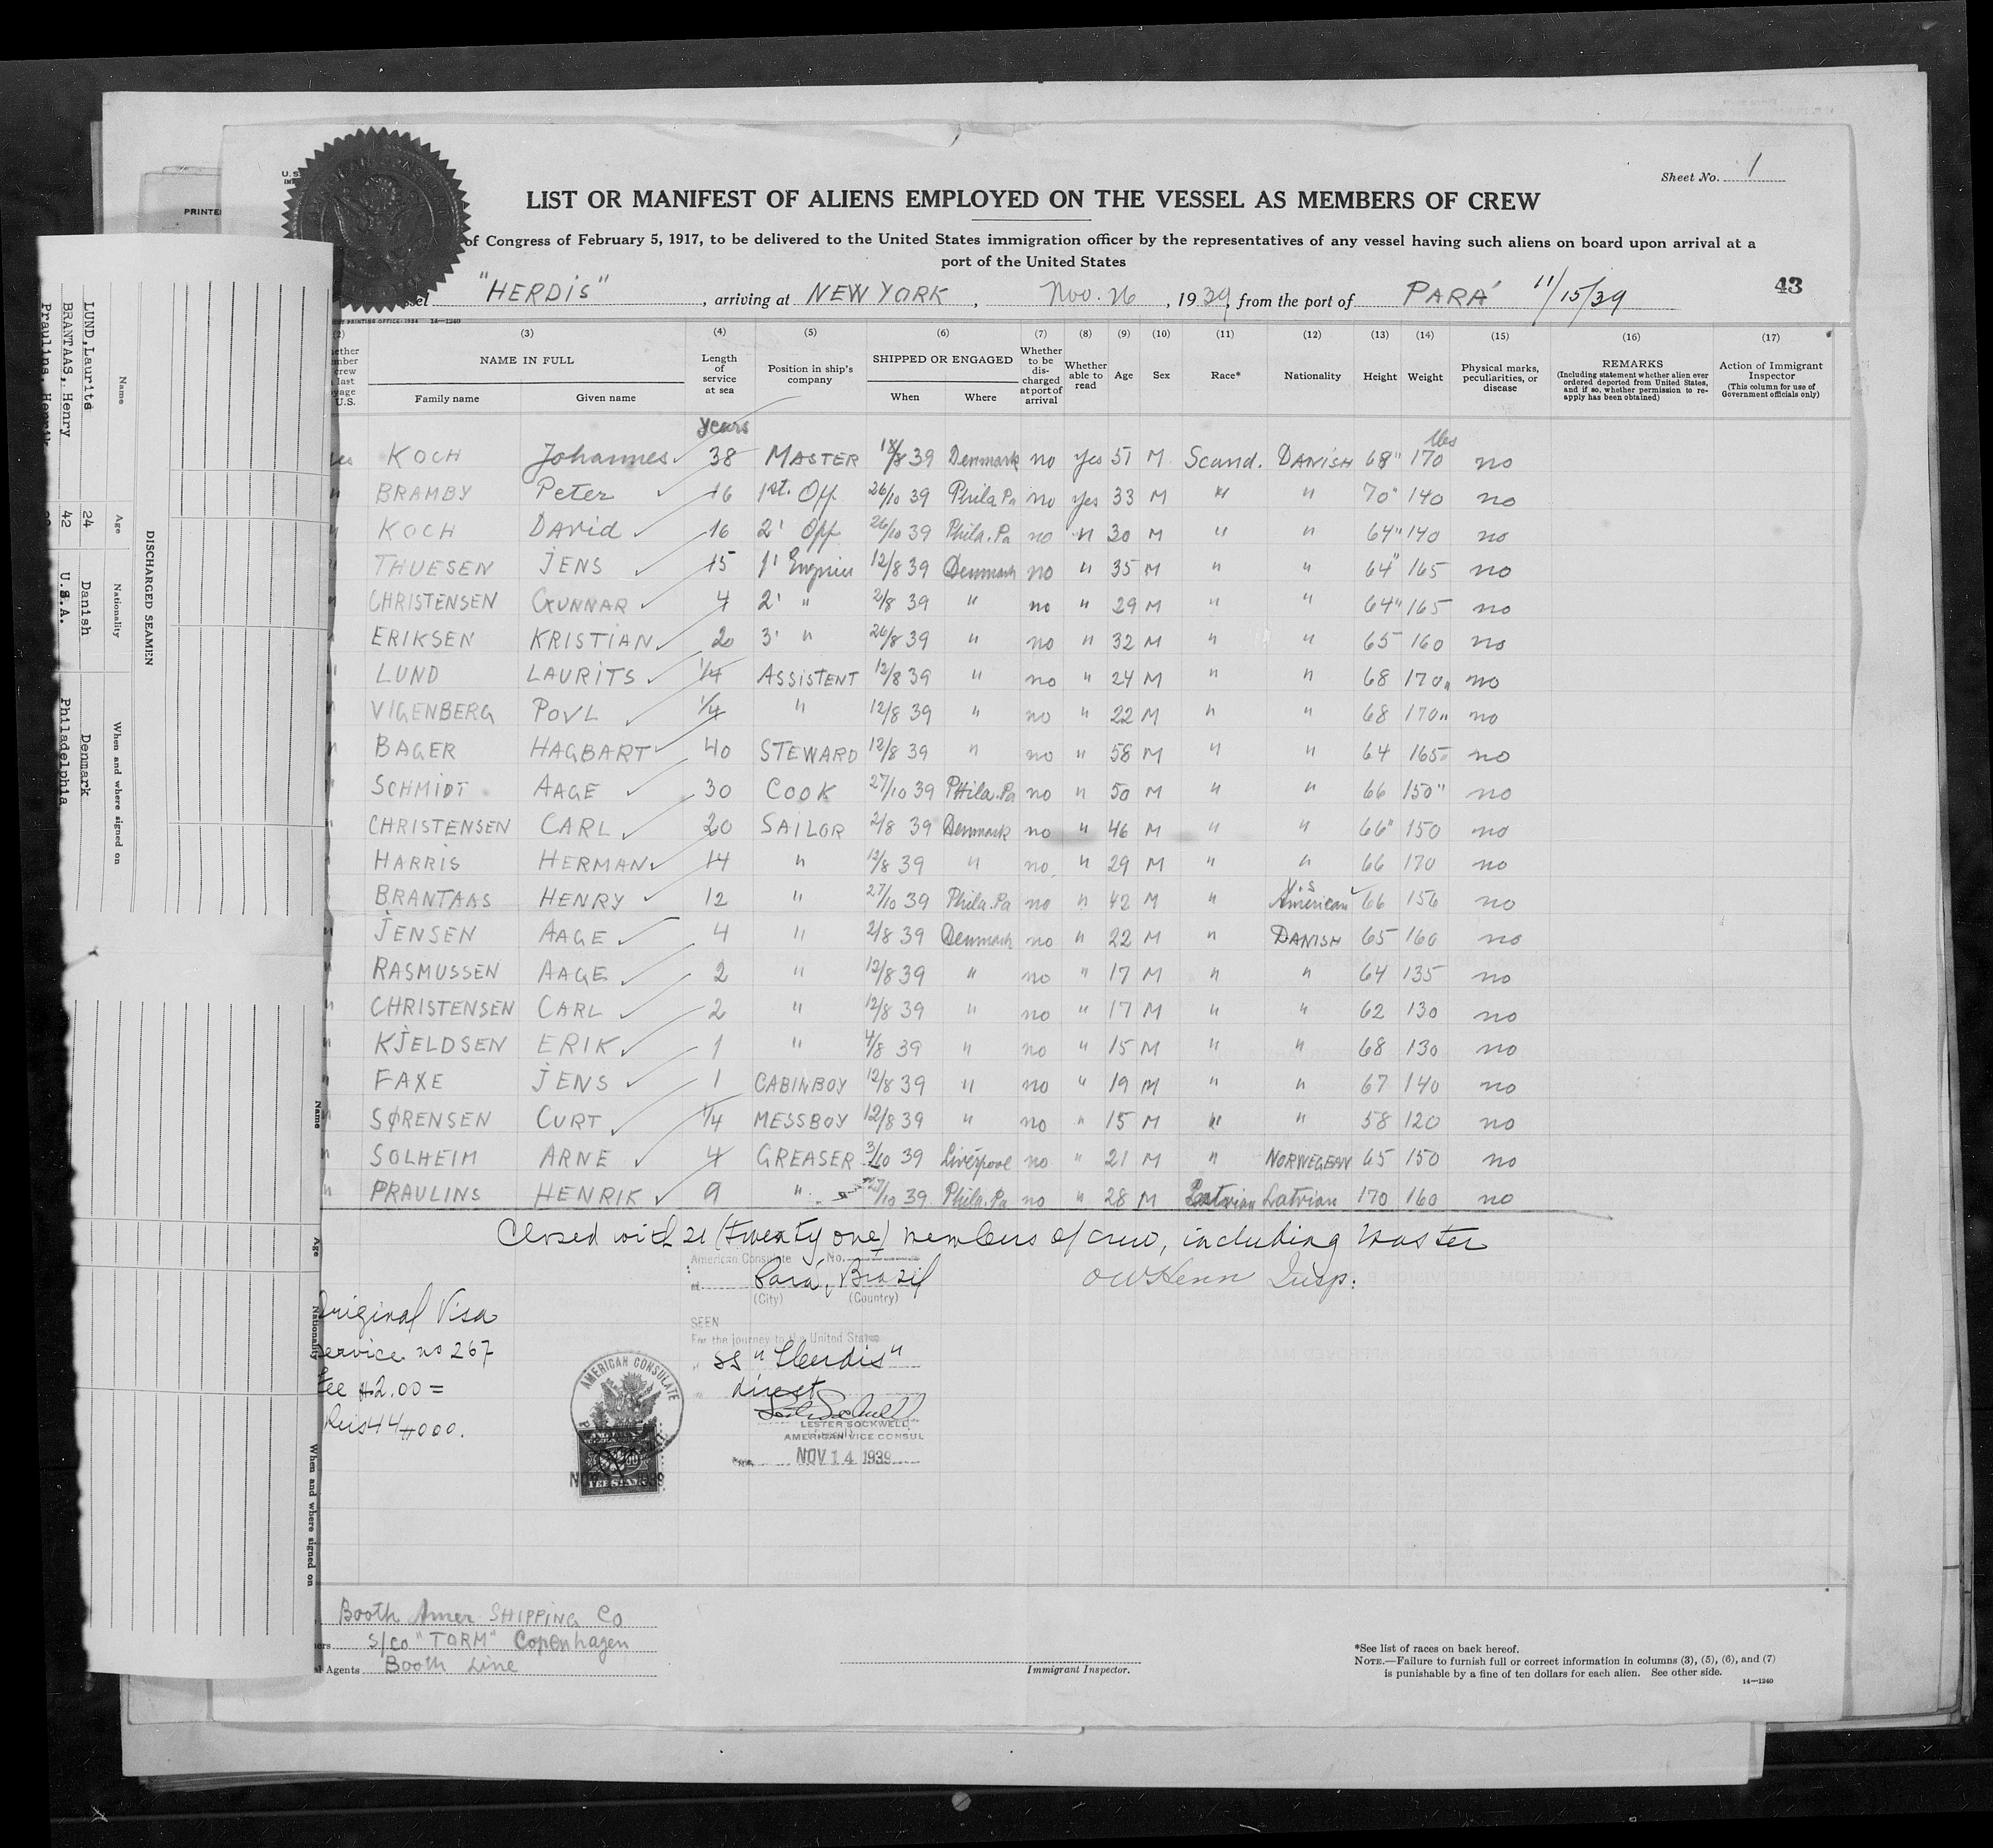 Sheet No. 1
LIST OR MANIFEST OF ALIENS EMPLOYED ON THE VESSEL AS MEMBERS OF CREW
of Congress of February 5, 1917, to be delivered to the United States immigration officer by the representatives of any vessel having such aliens on board upon arrival at a
port of the United States
"HERDIS", arriving at NEW YORK, Nov. 26, 1939, from the port of PARÁ 11/15/39
43
(2) (3) (4) (5) (6) (7) (8) (9) (10) (11) (12) (13) (14) (15) (16) (17)
NAME IN FULL
Family name Given name
Length of service at sea
Position in ship's company
SHIPPED OR ENGAGED
When Where
Whether to be discharged at port of arrival
Whether able to read
Age
Sex
Race*
Nationality
Height
Weight
Physical marks, peculiarities, or disease
REMARKS
(Including statement whether alien ever ordered deported from United States, and if so, whether permission to reapply has been obtained)
Action of Immigrant Inspector
(This column for use of Government officials only)
years
lbs
KOCH Johannes 38 MASTER 39 Denmark no yes 51 M Scand. DANISH 68" 170 no
BRAMBY Peter 16 1st. Off 26/10 39 Phila Pa no yes 33 M " " 70" 140 no
KOCH DAVID 16 2' Off 26/10 39 Phila. Pa no " 30 M " " 64" 140 no
THUESEN JENS 15 1' 12/8 39 Denmark no " 35 M " " 64" 165 no
CHRISTENSEN GUNNAR 4 2' " 2/8 39 " no " 29 M " " 64" 165 no
ERIKSEN KRISTIAN 20 3' " 26/8 39 " no " 32 M " " 65 160 no
LUND LAURITS 1/4 ASSISTENT 12/8 39 " no " 24 M " " 68 170 " no
VIGENBERG POVL 1/4 " 12/8 39 " no " 22 M " " 68 170 " no
BAGER HAGBART 40 STEWARD 12/8 39 " no " 58 M " " 64 165 no
SCHMIDT AAGE 30 COOK 27/10 39 PHila. Pa no " 50 M " " 66 150" no
CHRISTENSEN CARL 20 SAILOR 2/8 39 Denmark no " 46 M " " 66" 150 no
HARRIS HERMAN 14 " 12/8 39 " no " 29 M " " 66 170 no
BRANTAAS HENRY 12 " 27/10 39 Phila. Pa no " 42 M " U.S American 66 156 no
JENSEN AAGE 4 " 2/8 39 Denmark no " 22 M " DANISH 65 160 no
RASMUSSEN AAGE 2 " 12/8 39 " no " 17 M " " 64 135 no
CHRISTENSEN CARL 2 " 12/8 39 " no " 17 M " " 62 130 no
KJELDSEN ERIK 1 " 4/8 39 " no " 15 M " " 68 130 no
FAXE JENS 1 CABINBOY 12/8 39 " no " 19 M " " 67 140 no
SØRENSEN CURT 1/4 MESSBOY 12/8 39 " no " 15 M " " 58 120 no
SOLHEIM ARNE 4 GREASER 3/10 39 Liverpool no " 21 M " NORWEGEAN 65 150 no
PRAULINS HENRIK 9 " 27/10 39 Phila. Pa no " 28 M Latvian Latvian 170 160 no
Closed with 21 (twenty one) members of crew, including Master
American Consulate No.
Pará, Brazil
(City) (Country)
Insp.
SEEN
For the journey to the United States
SS "Herdis"
direct
LESTER SOCKWELL
AMERICAN VICE CONSUL
NOV 14 1939
AMERICAN CONSULATE
FEE STAMP
Original Visa
Service no 267
Fee $2.00 =
Reis 44$000.
Booth Amer SHIPPING Co
S/Co "TORM" Copenhagen
Agents Booth Line
Immigrant Inspector.
*See list of races on back hereof.
NOTE.—Failure to furnish full or correct information in columns (3), (5), (6), and (7)
is punishable by a fine of ten dollars for each alien. See other side.
14—1240
DISCHARGED SEAMEN
Name Age Nationality When and where signed on
LUND, Laurits 24 Danish Denmark
BRANTAAS, Henry 42 U.S.A. Philadelphia
Praulins, Henrik
Name Age Nationality When and where signed on
PRINTE